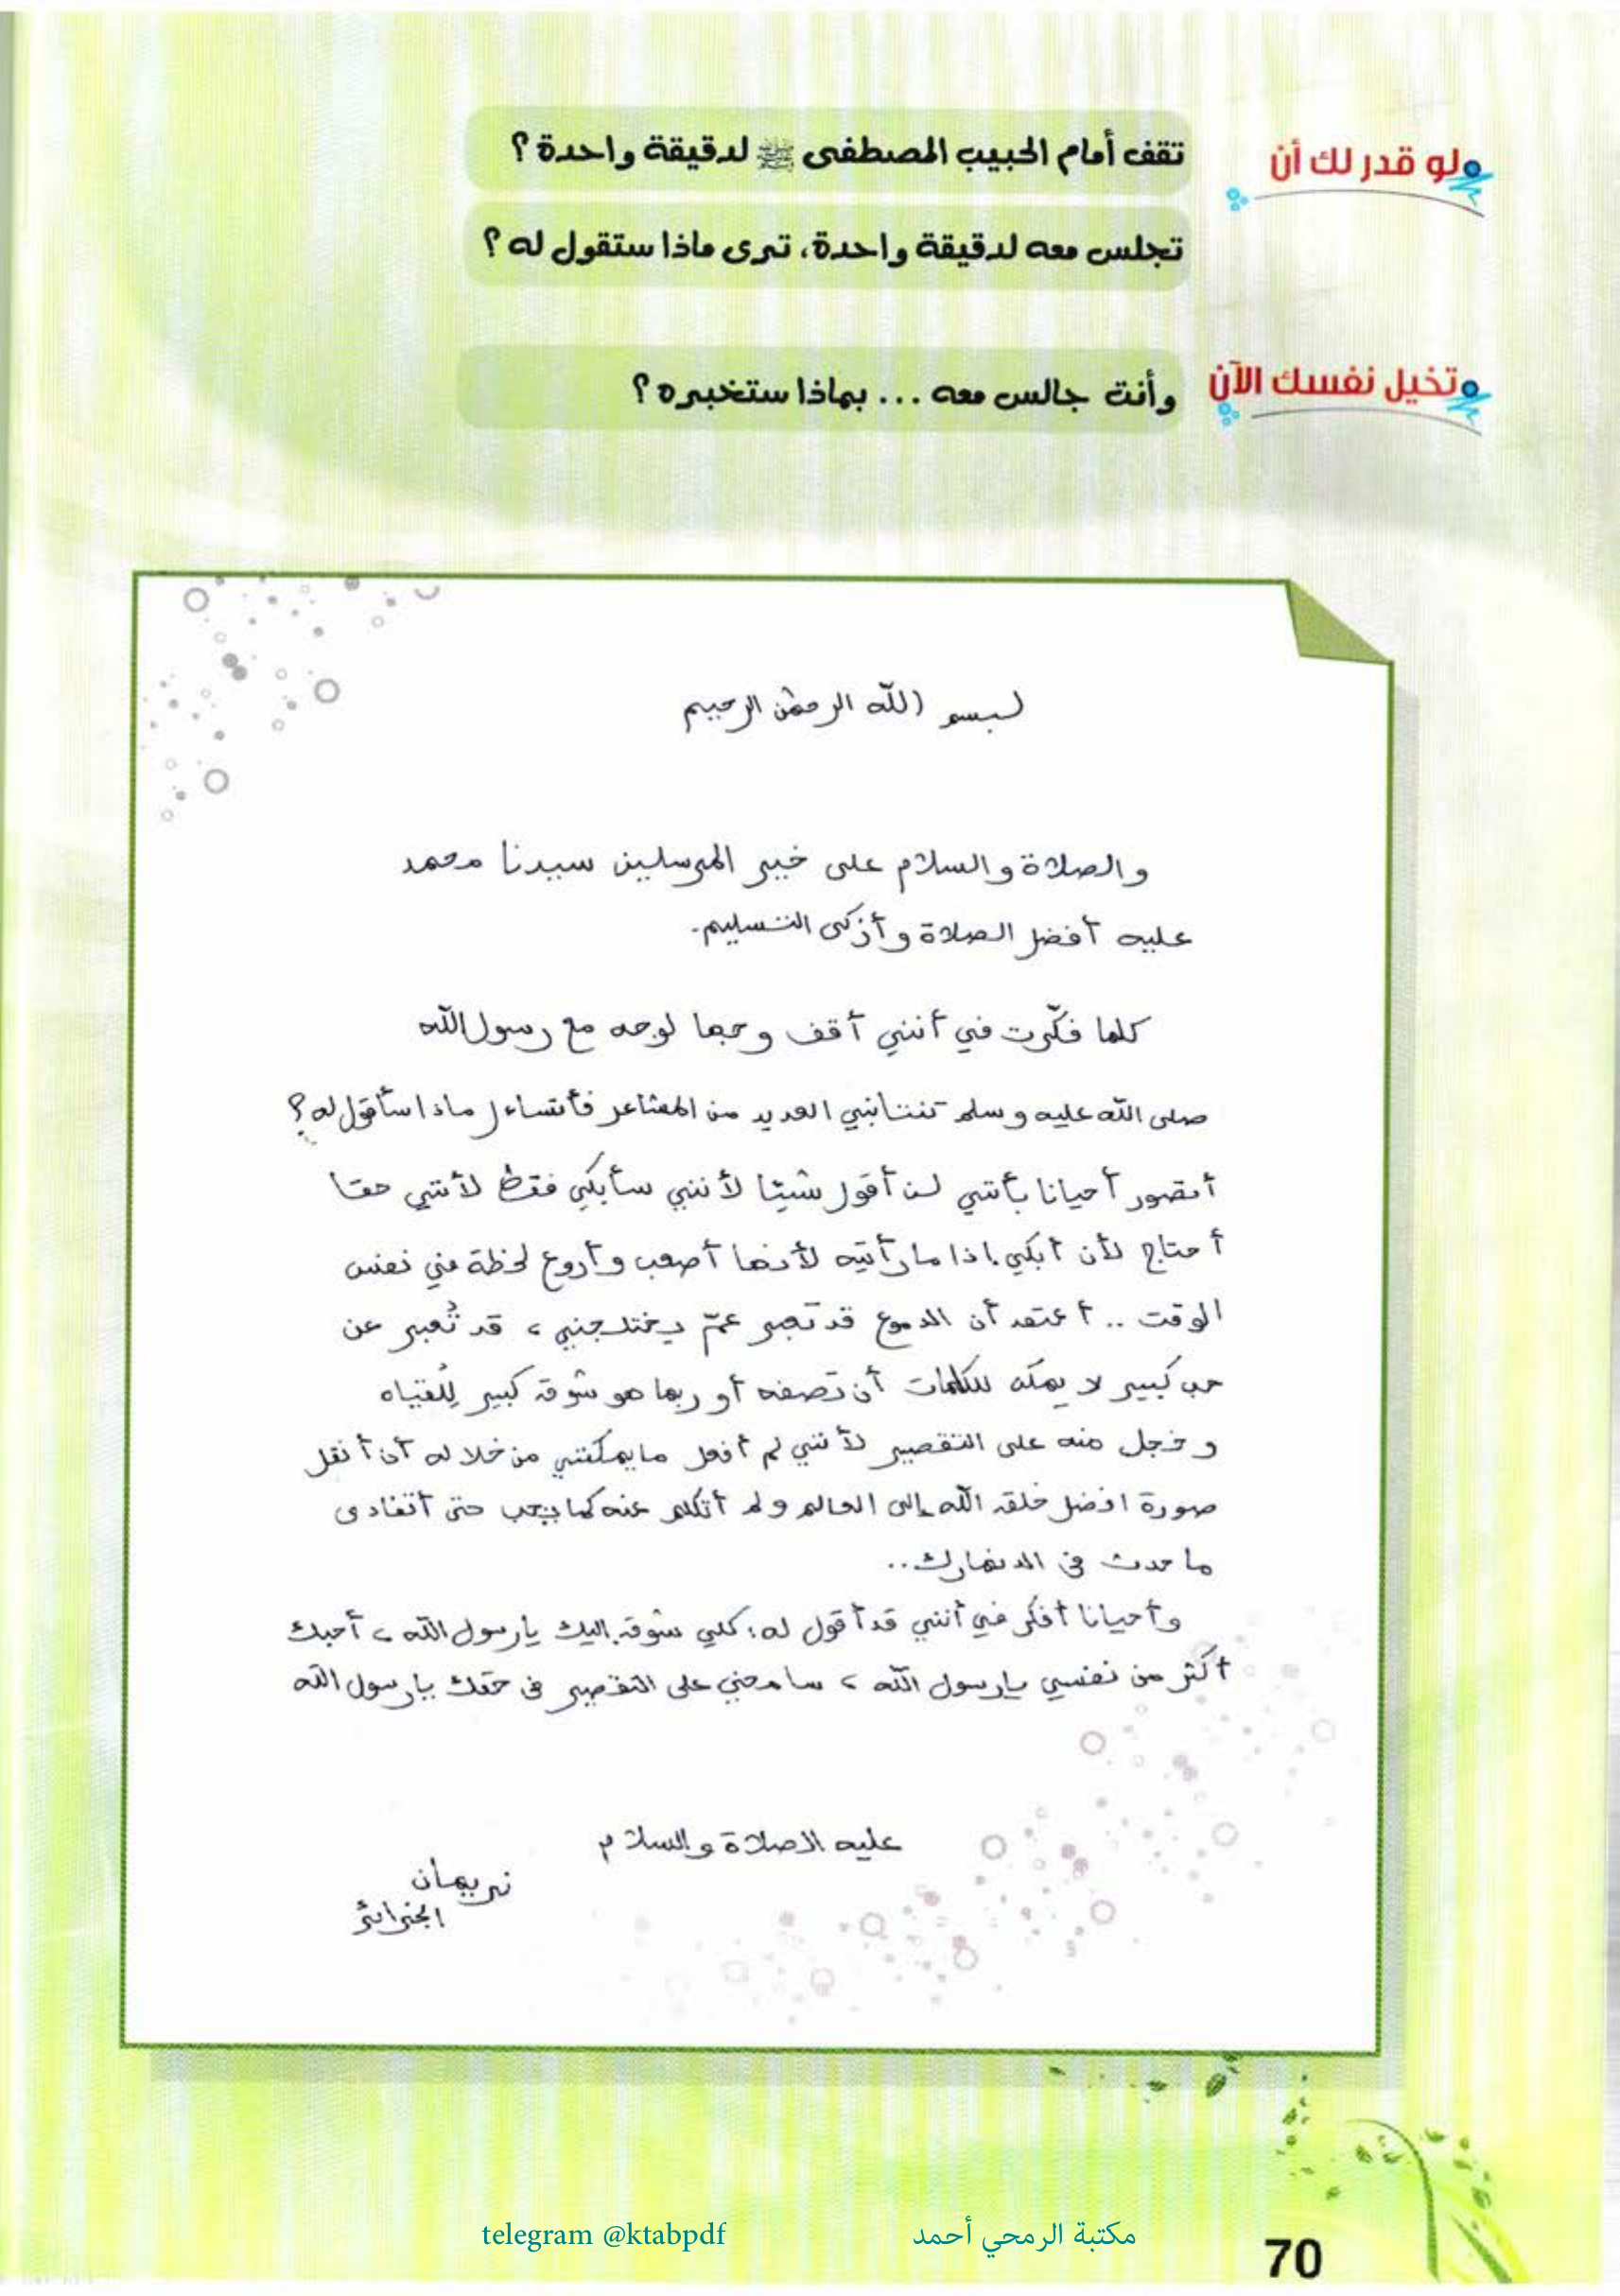 لو قدر لك أن
تقف أمام الحبيب المصطفى ﷺ لدقيقة واحدة؟
تجلس معه لدقيقة واحدة، ترى ماذا ستقول له؟
تخيل نفسك الآن
وأنت جالس معه ... بماذا ستخبره؟
بسم الله الرحمن الرحيم
والصلاة والسلام على خير المرسلين سيدنا محمد
عليه أفضل الصلاة وأزكى التسليم.
كلما فكّرت في أنني أقف وجها لوجه مع رسول الله
صلى الله عليه وسلم تنتابني العديد من المشاعر فأتساءل ماذا سأقول له؟
أتصور أحيانا بأنني لن أقول شيئا لأنني سأبكي فقط لأنني حقا
أحتاج لأن أبكي إذا ما رأيته لأنها أصعب وأروع لحظة في نفس
الوقت .. أعتقد أن الدموع قد تعبر عمّ يختلجني، قد تُعبر عن
حب كبير لا يمكن للكلمات أن تصفه أو ربما هو شوق كبير للقياه
وخجل منه على التقصير لأنني لم أفعل ما يمكنني من خلاله أن أنقل
صورة افضل خلق الله إلى العالم ولم أتكلم عنه كما يجب حتى أتفادى
ما حدث في الدنمارك..
وأحيانا أفكر في أنني قد أقول له: كلي شوق إليك يا رسول الله، أحبك
أكثر من نفسي يا رسول الله، سامحني على التقصير في حقك يا رسول الله
عليه الصلاة والسلام
نريمان
الجزائر
telegram @ktabpdf مكتبة الرمحي أحمد
70